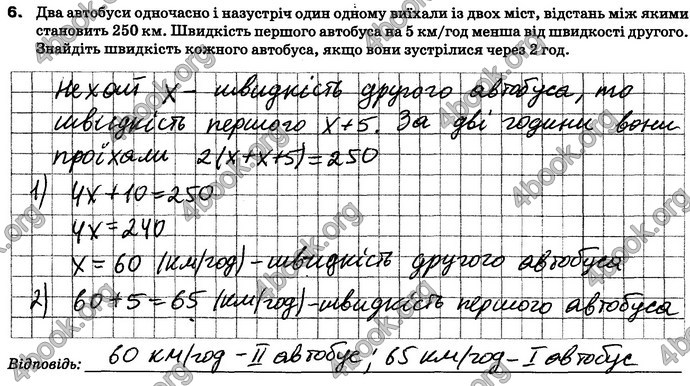 6. Два автобуси одночасно і назустріч один одному виїхали із двох міст, відстань між якими
становить 250 км. Швидкість першого автобуса на 5 км/год менша від швидкості другого.
Знайдіть швидкість кожного автобуса, якщо вони зустрілися через 2 год.
Нехай x – швидкість другого автобуса, то
швидкість першого x+5. За дві години вони
проїхали 2(x+x+5)=250
1) 4x+10=250
4x=240
x=60 (км/год)-швидкість другого автобуса
2) 60+5=65 (км/год)-швидкість першого автобуса
Відповідь: 60 км/год – II автобус; 65 км/год – I автобус
4book.org